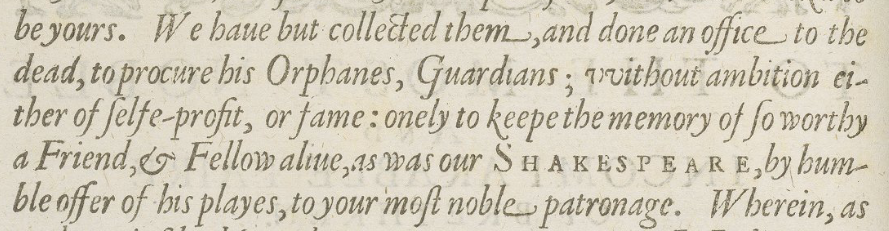 be yours. We haue but collected them, and done an office to the
dead, to procure his Orphanes, Guardians; vvithout ambition ei-
ther of ſelfe-profit, or fame: onely to keepe the memory of ſo worthy
a Friend, & Fellow aliue, as was our SHAKESPEARE, by hum-
ble offer of his playes, to your moſt noble patronage. Wherein, as